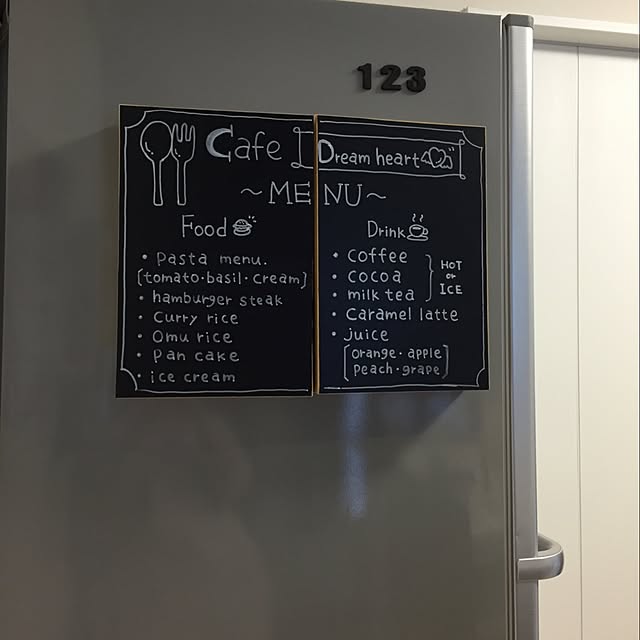 123
Cafe Dream heart
~MENU~
Food
• Pasta menu.
[tomato・basil・Cream]
• hamburger steak
• Curry rice
• Omu rice
• Pan cake
• ice cream
Drink
• Coffee
• cocoa
• milk tea
HOT
or
ICE
• Caramel latte
• juice
[orange・apple
peach・grape]